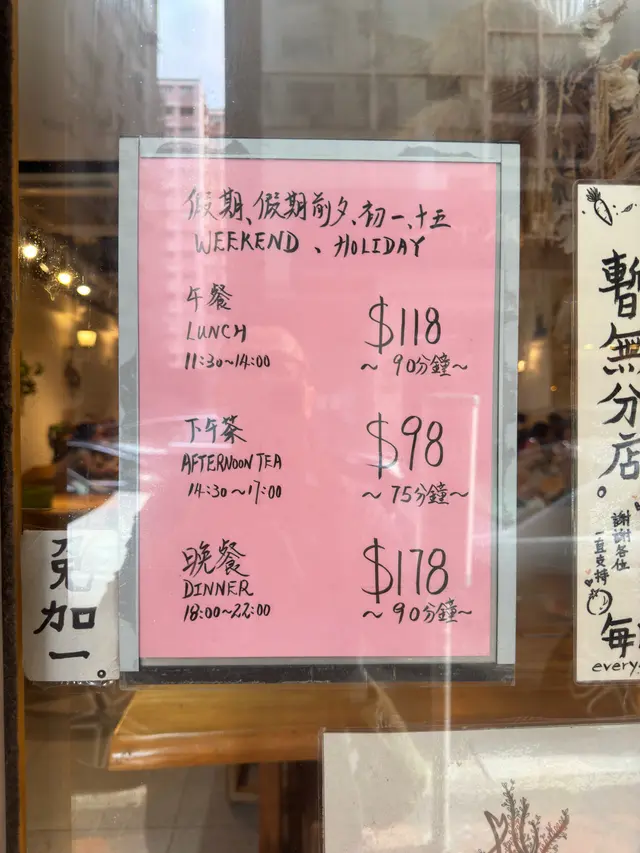 假期、假期前夕、初一、十五
WEEKEND、HOLIDAY
午餐
LUNCH
11:30~14:00
$118
~90分鐘~
下午茶
AFTERNOON TEA
14:30~17:00
$98
~75分鐘~
晚餐
DINNER
18:00~22:00
$178
~90分鐘~
免加一。
暫無分店。
謝謝各位
一直支持
每
every